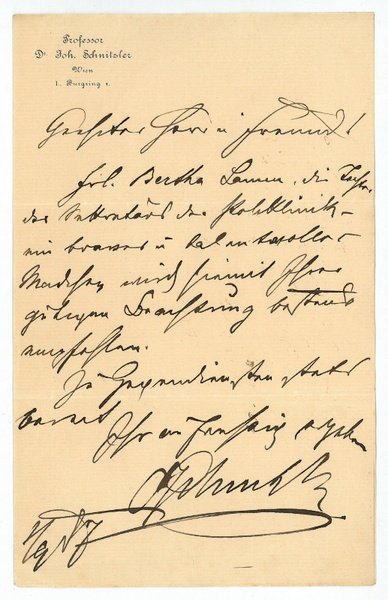 Professor
Dr Joh. Schnitzler
Wien
I. Burgring 1.
Geehrter Herr u Freund!
Frl. Bertha die Tochter
des Sekretärs der Poliklinik –
ein braves u talentvolles
Mädchen wird hiemit Ihrer
gütigen Beachtung bestens
empfohlen.
Zu Gegendiensten stets
bereit
Ihr aufrichtig ergebener
Schnitzler
87